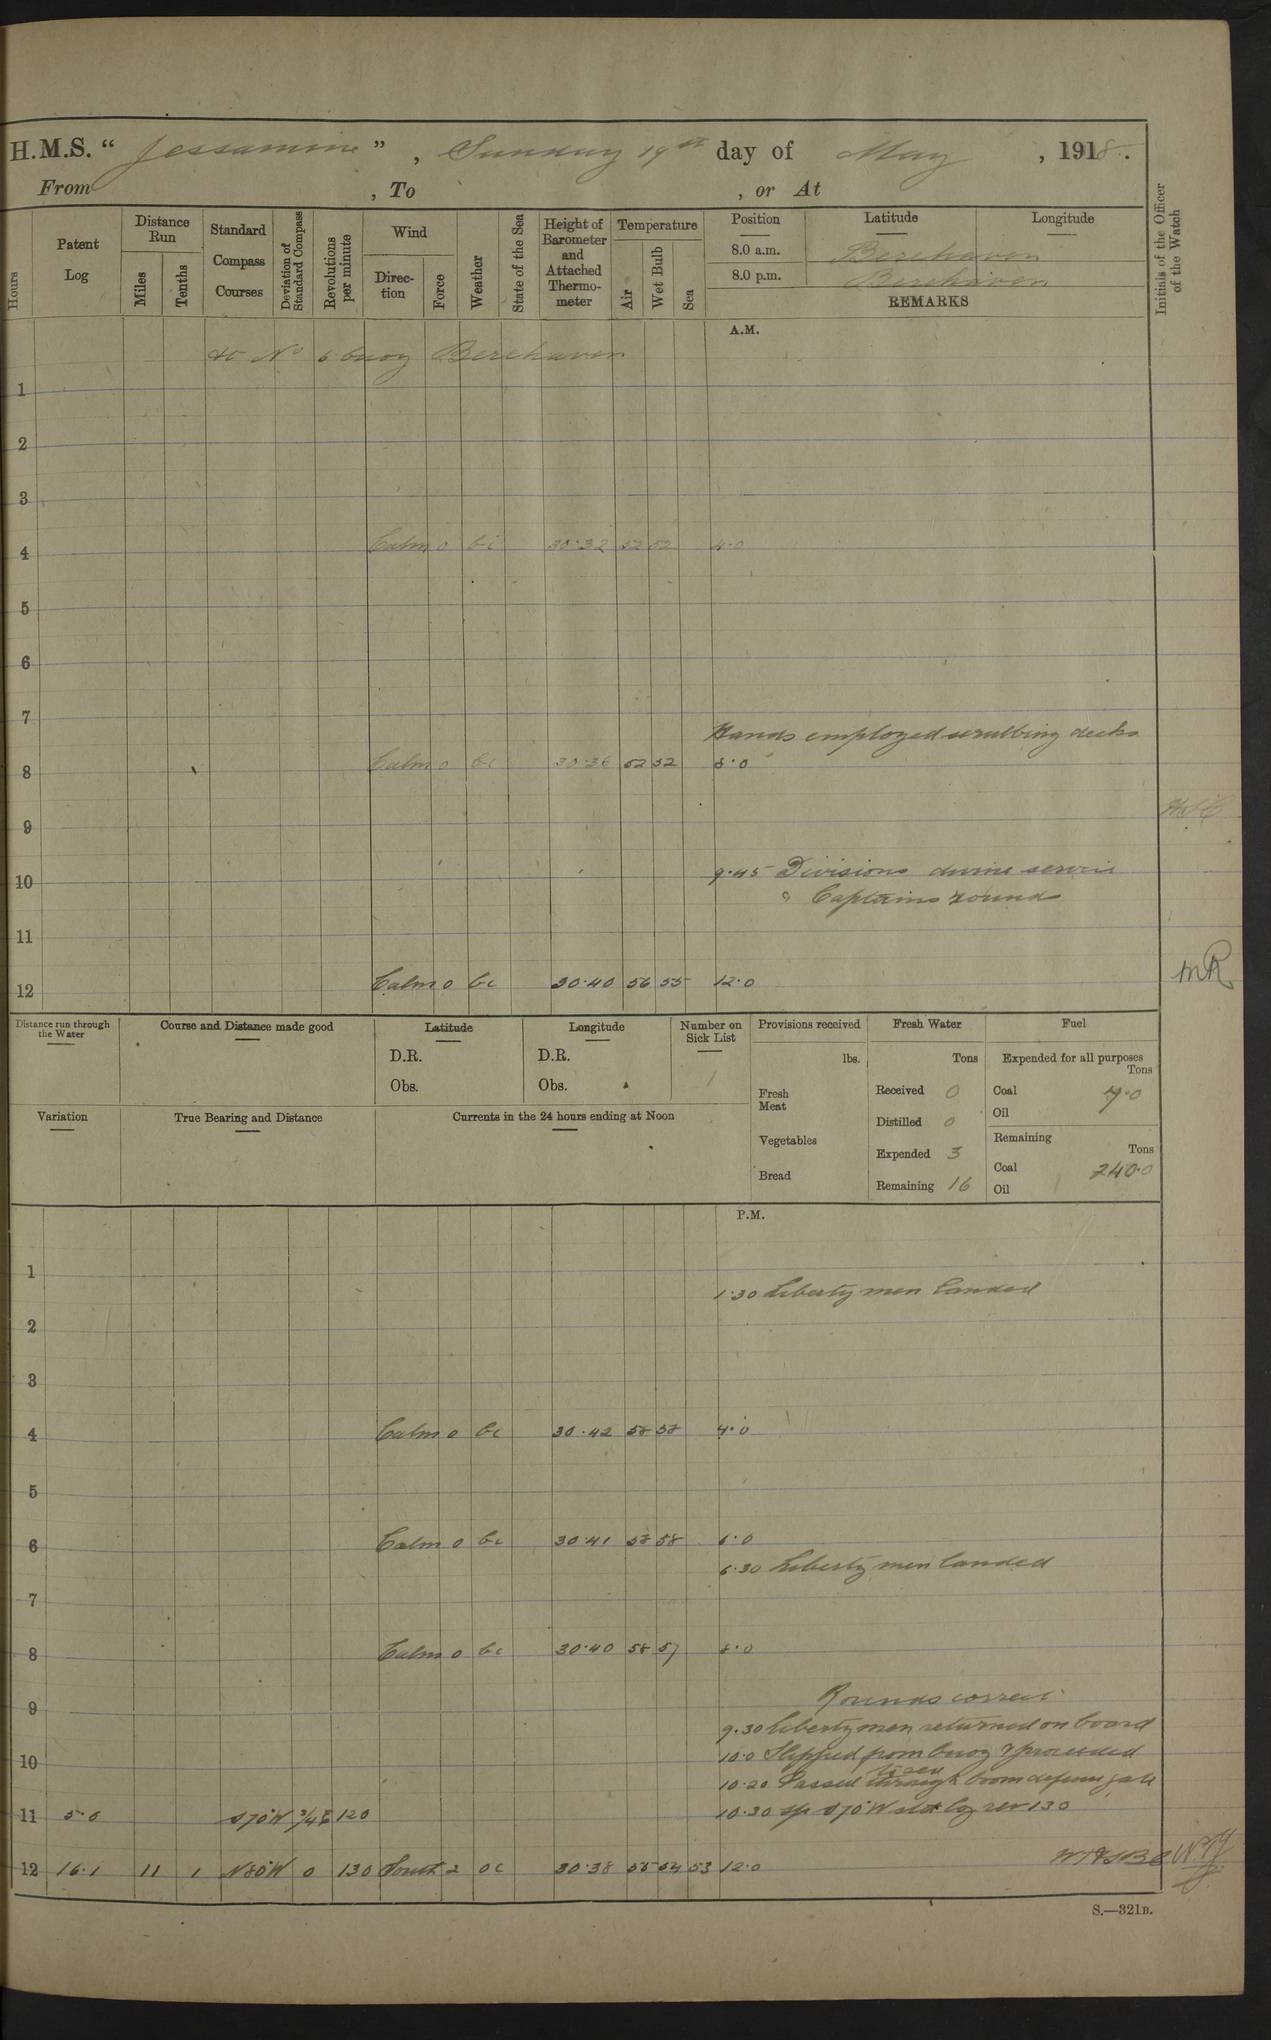 H.M.S. “ Jessamine ” , Sunday 19th day of May , 1918.
From , To , or At
Hours
Patent Log
Distance Run
Miles
Tenths
Standard Compass Courses
Deviation of Standard Compass
Revolutions per minute
Wind
Direc-tion
Force
Weather
State of the Sea
Height of Barometer and Attached Thermo-meter
Temperature
Air
Wet Bulb
Sea
Position Latitude Longitude
8.0 a.m. Berehaven
8.0 p.m. Berehaven
REMARKS
Initials of the Officer of the Watch
A.M.
At No 6 buoy Berehaven
1
2
3
4 Calm 0 bc 30.32 52 52 4.0
5
6
7
Hands employed scrubbing decks
8 Calm 0 bc 30.36 52 52 8.0
9
9.45 Divisions divine service
10
& Captains rounds
11
12 Calm 0 bc 30.40 56 55 12.0 MR
Distance run through the Water
Course and Distance made good
Latitude
D.R.
Obs.
Longitude
D.R.
Obs.
Number on Sick List
1
Provisions received
lbs.
Fresh Meat
Vegetables
Bread
Fresh Water
Tons
Received 0
Distilled 0
Expended 3
Remaining 16
Fuel
Expended for all purposes
Tons
Coal 7.0
Oil
Remaining
Tons
Coal 240.0
Oil
Variation
True Bearing and Distance
Currents in the 24 hours ending at Noon
P.M.
1
1.30 Liberty men landed
2
3
4 Calm 0 bc 30.42 58 58 4.0
5
6 Calm 0 bc 30.41 58 58 6.0
6.30 Liberty men landed
7
8 Calm 0 bc 30.40 58 57 8.0
Rounds correct
9
9.30 Liberty men returned on board
10.0 Slipped from buoy & proceeded
10
10.20 Passed through boom defence gate
11 5.0 S70°W 3/4E 120 10.30 S70°W log rev 130
12 16.1 11 1 N80°W 0 130 South 2 oc 30.38 55 54 53 12.0
S.—321B.